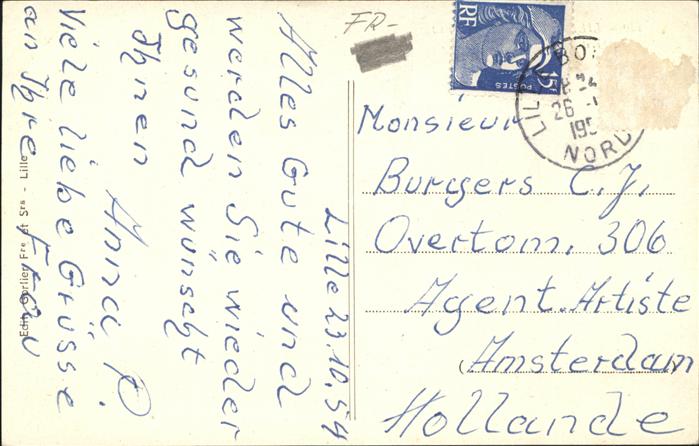 FR-
Lille 23.10.54
Alles Gute und
werden Sie wieder
gesund wünscht
Ihnen
Anna P.
Viele liebe Grüsse
an Ihre Frau
Edit. Carlier Fre et Srs - Lille
RF
15F
POSTES
LILLE
26
195
NORD
Monsieur
Burgers C.J.
Overtom. 306
Agent. Artiste
(Amsterdam
Hollande